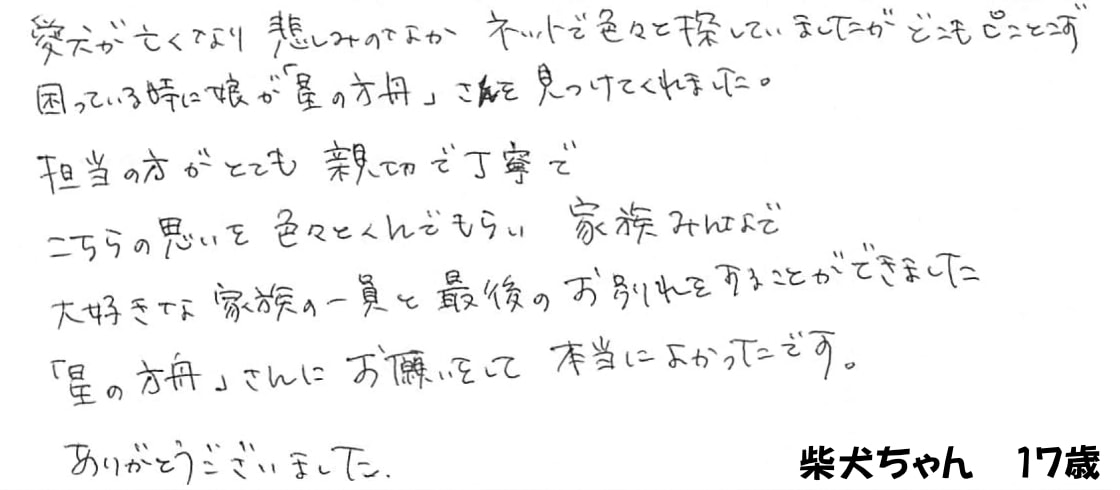 愛犬が亡くなり 悲しみのなか ネットで色々と探していましたがどこもピンとこず
困っている時に娘が「星の方舟」さんを見つけてくれました。
担当の方がとても 親切で丁寧で
こちらの思いを 色々とくんでもらい 家族みんなで
大好きな 家族の一員と最後の お別れをすることができました
「星の方舟」さんに お願いをして 本当によかったです。
ありがとうございました.
柴犬ちゃん 17歳